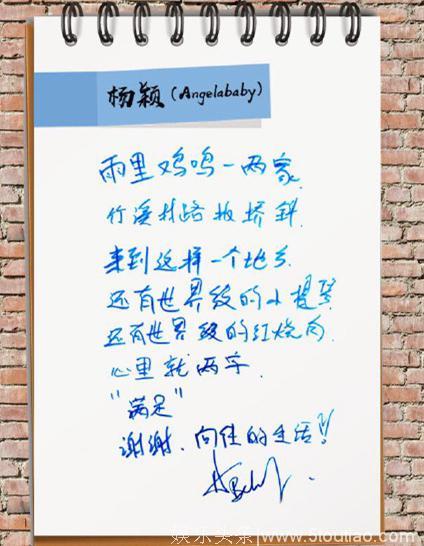 杨颖(Angelababy)
雨里鸡鸣一两家.
竹溪村路板桥斜.
来到这样一个地方.
还有世界级的小提琴
还有世界级的红烧肉.
心里就两字.
"满足"
谢谢.向往的生活!!